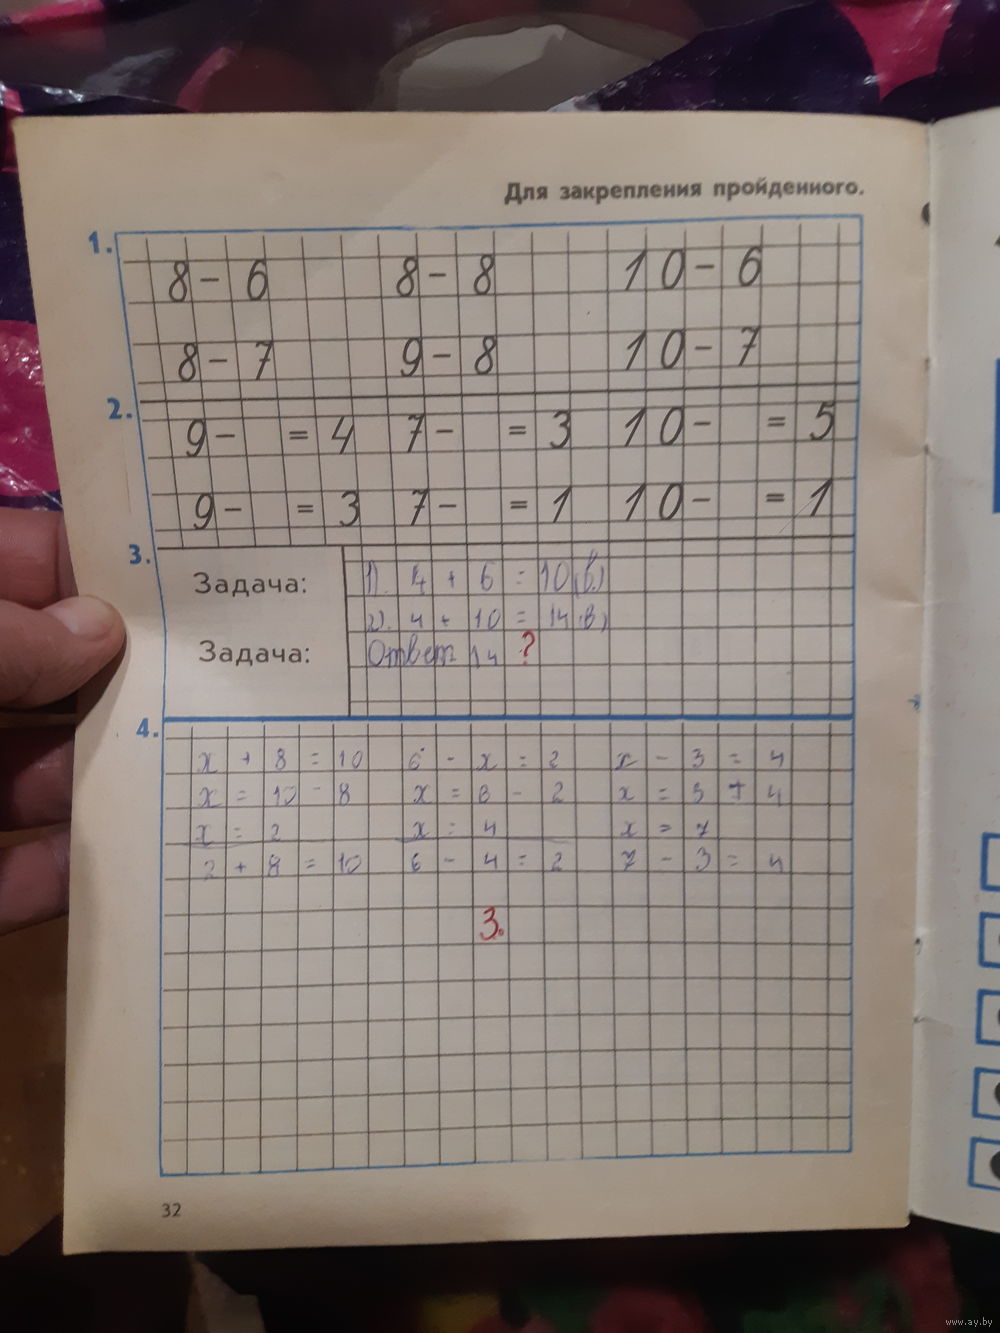 Для закрепления пройденного.
1.
8 - 6 8 - 8 10 - 6
8 - 7 9 - 8 10 - 7
2.
9 - = 4 7 - = 3 10 - = 5
9 - = 3 7 - = 1 10 - = 1
3.
Задача: 1). 4 + 6 = 10 (в.)
2). 4 + 10 = 14 (в)
Задача: Ответ 14 ?
4.
x + 8 = 10 6 - x = 2 x - 3 = 4
x = 10 - 8 x = 6 - 2 x = 3 + 4
x = 2 x = 4 x = 7
2 + 8 = 10 6 - 4 = 2 7 - 3 = 4
3.
32
www.ay.by